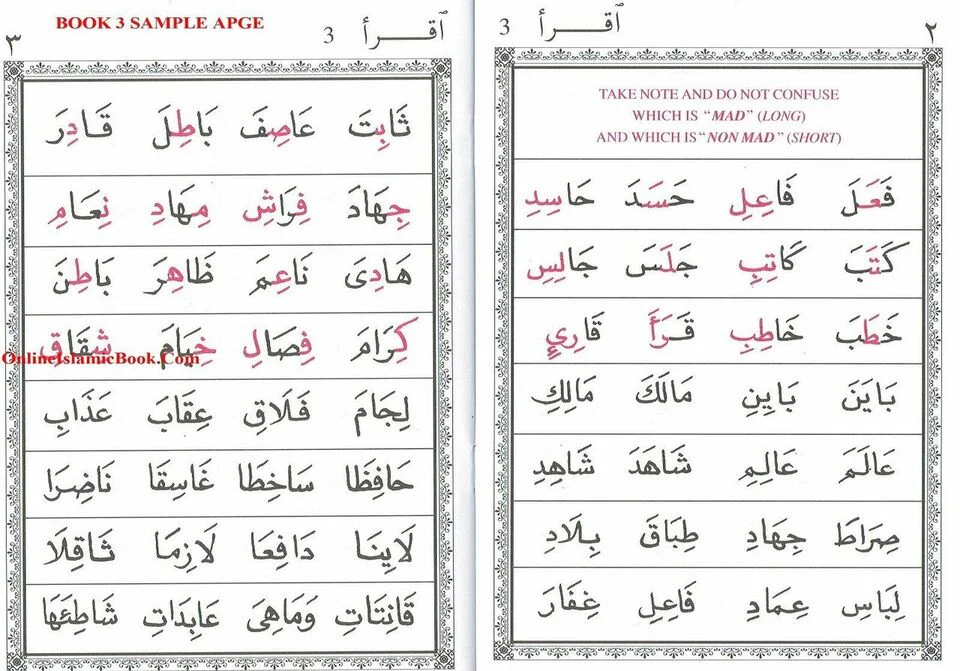 BOOK 3 SAMPLE APGE
٢ ٱقْرأ 3
TAKE NOTE AND DO NOT CONFUSE
WHICH IS “MAD” (LONG)
AND WHICH IS “NON MAD” (SHORT)
فَعَلَ فَاعِلِ حَسَدَ حَاسِدِ
كَتَبَ كَاتِبِ جَلَسَ جَالِسِ
خَطَبَ خَاطِبِ قَرَأَ قَارِيِ
بَايَنَ بَايِنِ مَالَكَ مَالِكِ
عَالَمَ عَالِمِ شَاهَدَ شَاهِدِ
صِرَاطَ جِهَادِ طِبَاقَ بِلَادِ
لِبَاسِ عِمَادِ فَاعِلِ غِفَارَ
٣ ٱقْرأ 3
ثَابِتَ عَاصِفَ بَاطِلَ قَادِرَ
جِهَادَ فِرَاشِ مِهَادِ نِعَامِ
هَادِىَ نَاعِمَ ظَاهِرَ بَاطِنَ
كِرَامَ فِصَالِ خِيَامَ شِقَاقِ
لِجَامَ فَلَاقِ عِقَابَ عَذَابِ
حَافِظَا سَاخِطَا غَاسِقَا نَاضِرَا
لَايِنَا دَافِعَا لَازِمَا ثَاقِلَا
قَانِتَاتِ وَمَاهِىَ عَابِدَاتِ شَاطِئَهَا
OnlineIslamicBook.Com